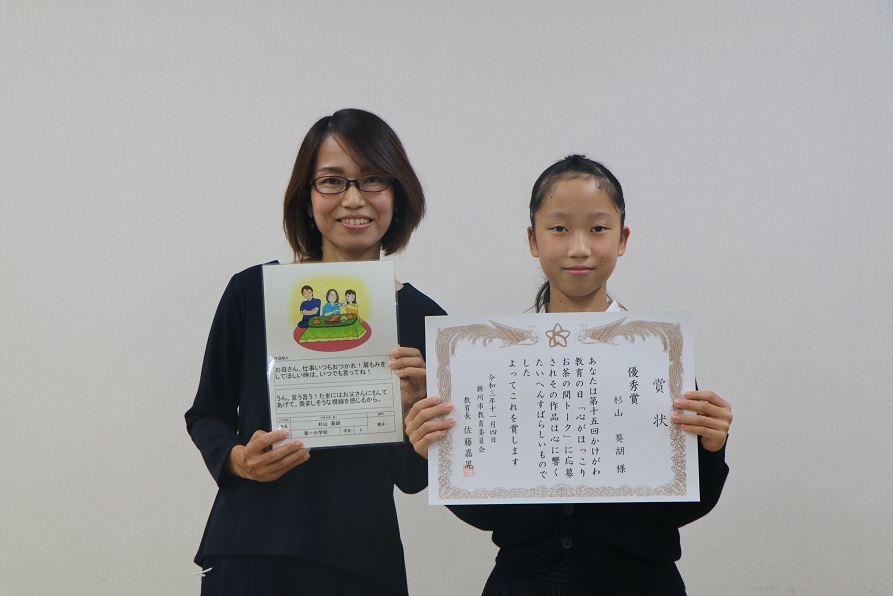 お母さん、仕事いつもおつかれ！肩もみを
してほしい時は、いつでも言ってね！
うん、言う言う！たまにはお父さんにもして
あげて、羨ましそうな視線を感じるから。
杉山 葵胡
第一小学校
学年
親子
賞状
優秀賞
杉山 葵胡 様
あなたは第十五回かけがわ
教育の日「心がほっこり
お茶の間トーク」に応募
されその作品は心に響く
たいへんすばらしいもので
した
よってこれを賞します
令和三年十一月四日
掛川市教育委員会
教育長 佐藤嘉晃